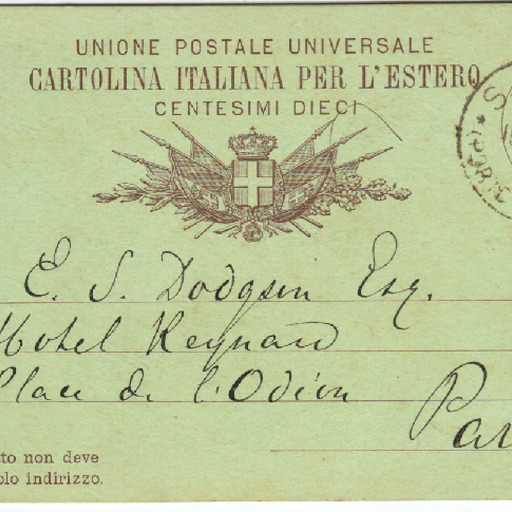 UNIONE POSTALE UNIVERSALE
CARTOLINA ITALIANA PER L'ESTERO
CENTESIMI DIECI
E. S. Dodgson Esq.
Hotel Reynard
Place de l'Odéon
Par
to non deve
olo indirizzo.